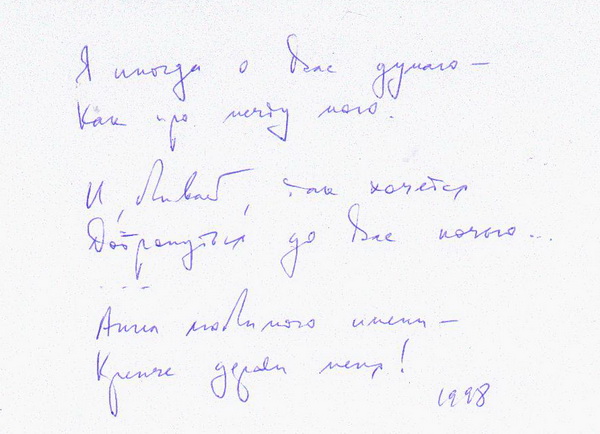 Я иногда о Вас думаю —
Как про мечту мою.
И, бывает, так хочется
Дотронуться до Вас ночью...
...
Анна любимого имени —
Крепче держи меня!
1998